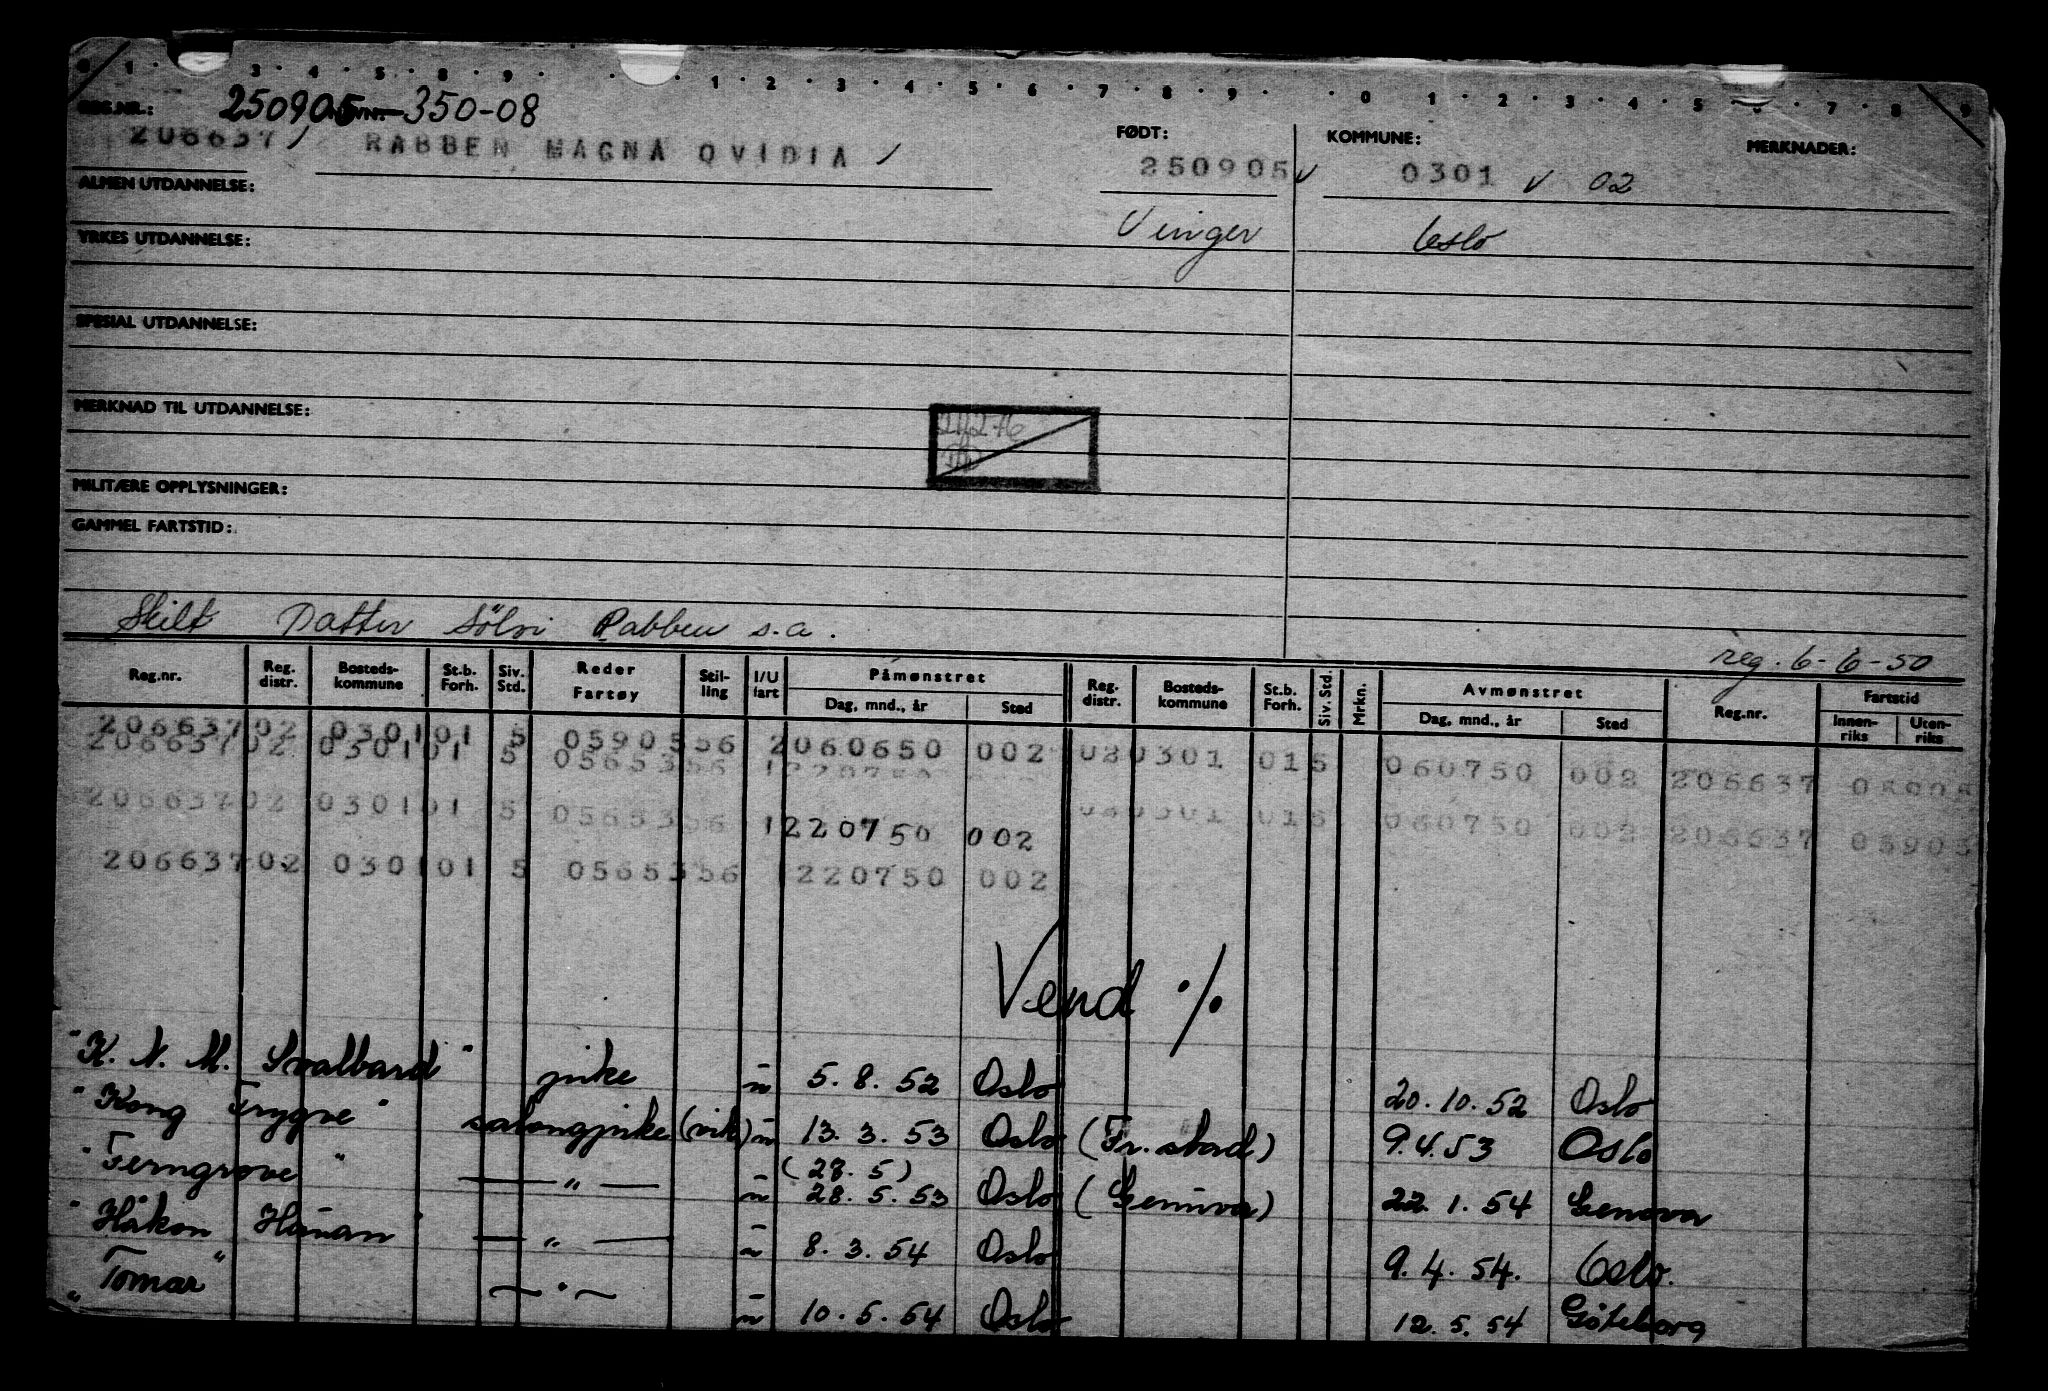 0 1 3 4 5 8 9 1 2 3 4 5 6 7 8 9 0 1 2 3 4 5 7 8 9
REG.NR.: 250905-350-08
206637 RABBEN MAGNA OVIDIA
FØDT: 250905 KOMMUNE: 0301 02 MERKNADER:
ALMEN UTDANNELSE:
Vinger Oslo
YRKES UTDANNELSE:
SPESIAL UTDANNELSE:
MERKNAD TIL UTDANNELSE:
MILITÆRE OPPLYSNINGER:
GAMMEL FARTSTID:
Skilt Datter Sölvi Rabben s.a.
reg. 6-6-50
Reg.nr. Reg. distr. Bosteds-kommune St.b. Forh. Siv. Std. Reder Fartøy Stil-ling I/U fart Påmønstret Dag, mnd., år Sted Reg. distr. Bosteds-kommune St.b. Forh. Siv. Std. Mrkn. Avmønstret Dag, mnd., år Sted Reg.nr. Fartstid Innen-riks Uten-riks
206637 02 0301 01 5 0590 5 56 2 060650 002 02 0301 01 5 060750 002 206637 05905
206637 02 0301 01 5 0565 3 56 1 220750
206637 02 0301 01 5 0565 3 56 1 220750 002 02 0301 01 5 060750 002 206637 05905
206637 02 0301 01 5 0565 3 56 1 220750 002
Vend ./.
"K. N. M. Svalbard" pike u 5. 8. 52 Oslo 20. 10. 52 Oslo
"Kong Trygve" salongpike (vik) u 13. 3. 53 Oslo (Fr.stad) 9.4.53 Oslo
(28. 5)
"Ferngrove" —"— u 28. 5. 53 Oslo (Genova) 22. 1. 54 Genova
"Håkon Hauan" —"— u 8. 3. 54 Oslo 9. 4. 54. Oslo.
"Tomar" —"— u 10. 5. 54 Oslo 12. 5. 54 Göteborg